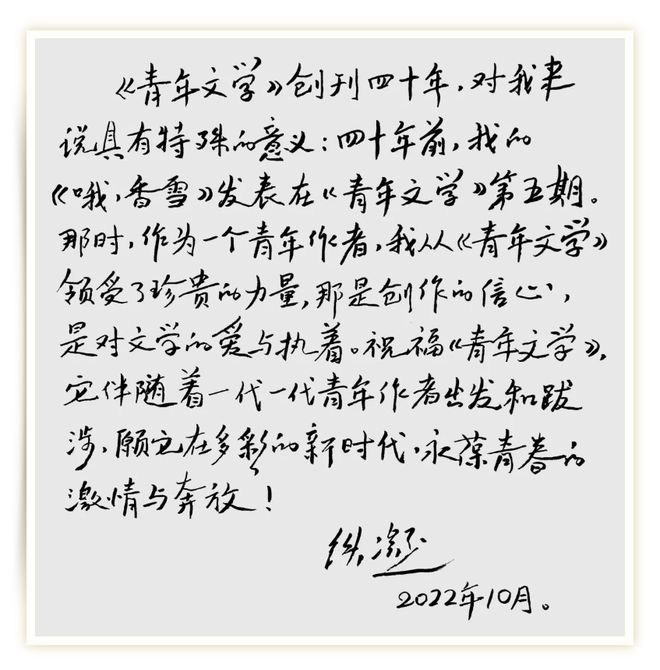 《青年文学》创刊四十年，对我来
说具有特殊的意义：四十年前，我的
《哦，香雪》发表在《青年文学》第五期。
那时，作为一个青年作者，我从《青年文学》
领受了珍贵的力量，那是创作的信心，
是对文学的爱与执着。祝福《青年文学》，
它伴随着一代一代青年作者出发和跋
涉，愿它在多彩的新时代，永葆青春的
激情与奔放！
铁凝
2022年10月。